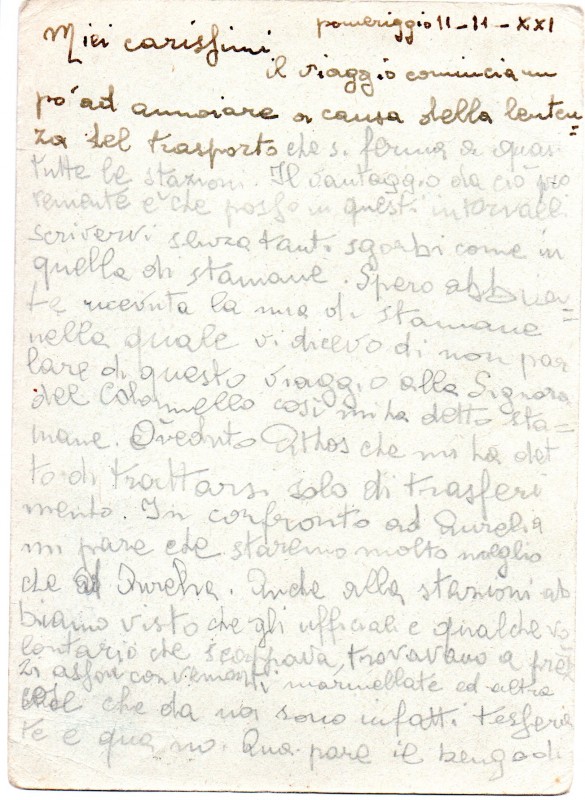 pomeriggio 11-11-XXI
Miei carissimi
il viaggio comincia un
po' ad annoiare a causa della lenten=
za del trasporto che si ferma a quasi
tutte le stazioni. Il vantaggio da ciò pro
veniente è che posso in questi intervalli
scrivervi senza tanti sgorbi come in
quella di stamane. Spero abbia=
te ricevuta la mia di stamane
nella quale vi dicevo di non par
lare di questo viaggio alla Signora
del Colonnello così mi ha detto sta=
mane. Ò veduto Athos che mi ha det
to di trattarsi solo di trasferi
mento. In confronto ad Aurelia
mi pare che staremo molto meglio
che ad Aurelia. Anche alla stazioni ab
biamo visto che gli ufficiali e qualche vo
lontario che scappava, trovavano a prez
zi assai convenienti marmellate ed altre
cose che da noi sono infatti tesserа
te e qua no. Qua pare il bengodi